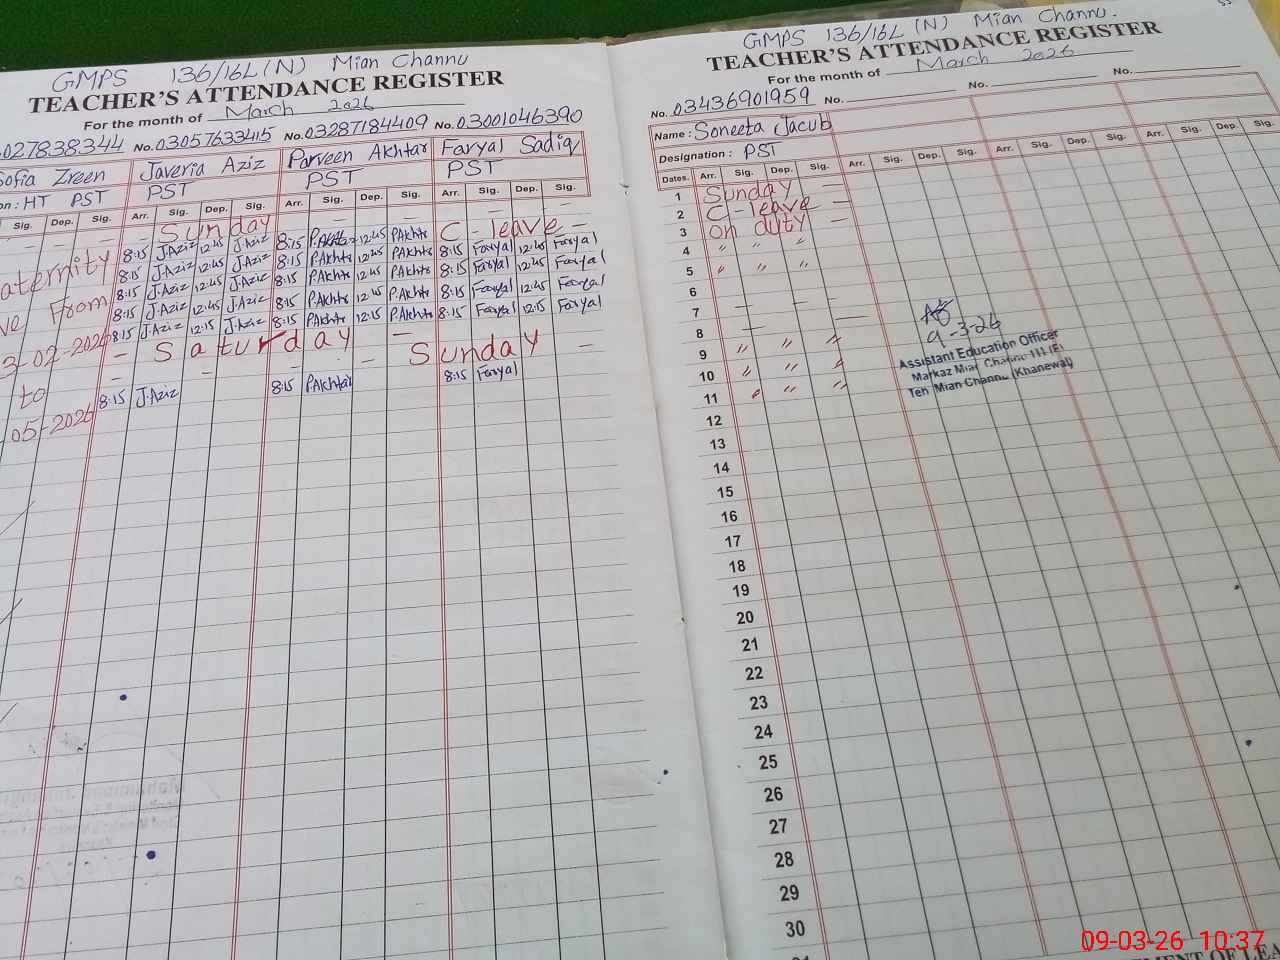 GMPS 136/16L (N) Mian Channu
TEACHER'S ATTENDANCE REGISTER
For the month of March 2026
027838344 No. 03057633415 No. 03287184409 No. 03001046390
Sofia Zreen Javeria Aziz Parveen Akhtar Faryal Sadiq
on: HT PST PST PST PST
Sig. Dep. Sig. Arr. Sig. Dep. Sig. Arr. Sig. Dep. Sig. Arr. Sig. Dep. Sig.
— — Sunday — — — —
aternity 8:15 J.Aziz 12:45 J.Aziz 8:15 P.Akhtar 12:45 PAkhtr C-leave —
8:15 J.Aziz 12:45 J.Aziz 8:15 PAkhtr 12:45 PAkhtr 8:15 Faryal 12:45 Faryal
ve From 8:15 J.Aziz 12:45 J.Aziz 8:15 PAkhtr 12:45 PAkhtr 8:15 Faryal 12:45 Faryal
8:15 J.Aziz 12:45 J.Aziz 8:15 P.Akhtr 12:45 PAkhtr 8:15 Faryal 12:45 Faryal
3-02-2026 8:15 J.Aziz 12:15 J.Aziz 8:15 PAkhtr 12:15 PAkhtr 8:15 Faryal 12:15 Faryal
— Saturday —
to — — — — Sunday —
05-2026 8:15 J.Aziz 8:15 PAkhtar 8:15 Faryal
GMPS 136/16L (N) Mian Channu.
TEACHER'S ATTENDANCE REGISTER
For the month of March 2026
No. 03436901959 No. No. No.
Name: Soneeta Jacub
Designation: PST
Dates. Arr. Sig. Dep. Sig. Arr. Sig. Dep. Sig. Arr. Sig. Dep. Sig. Arr. Sig. Dep. Sig.
1 Sunday —
2 C-leave —
3 on duty —
4 " " "
5 " " "
6
7 — — —
8 — — —
9 " " "
10 " " "
11 " " "
12
13
14
15
16
17
18
19
20
21
22
23
24
25
26
27
28
29
30
9-3-26
Assistant Education Officer
Markaz Mian Channu III (E)
Teh Mian Channu (Khanewal)
09-03-26 10:37